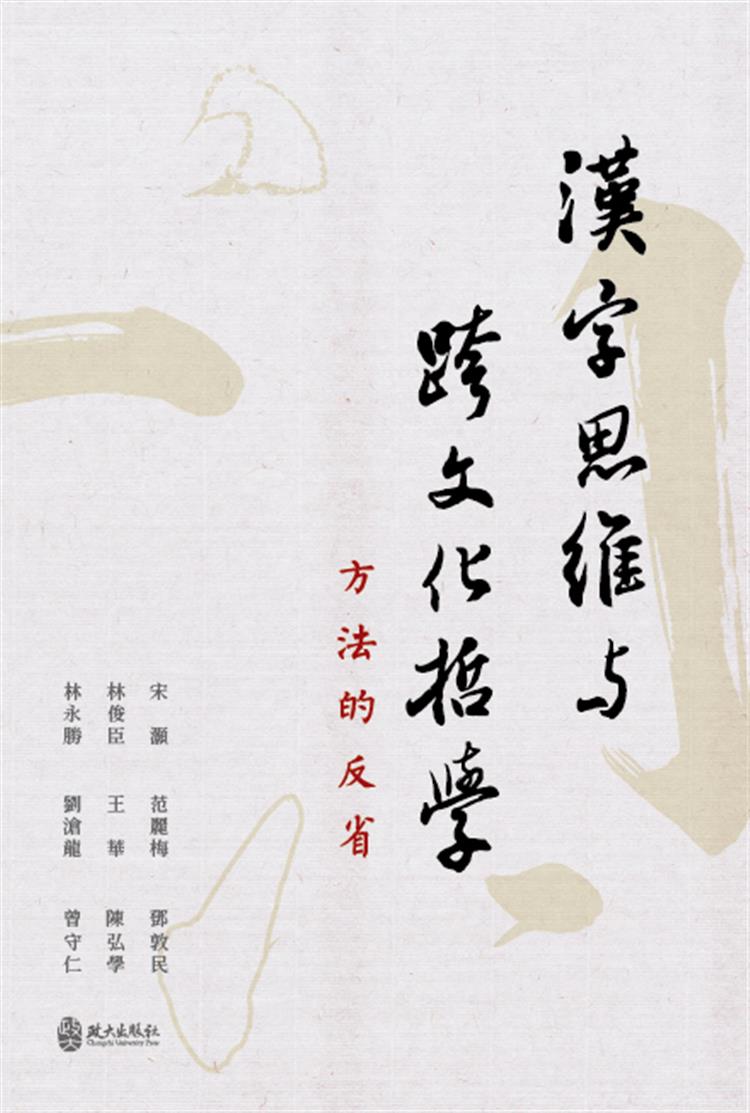 漢字思維与
跨文化哲學
方法的反省
宋灝 范麗梅 鄧敦民
林俊臣 王華 陳弘學
林永勝 劉滄龍 曾守仁
政大出版社
Chengchi University Press